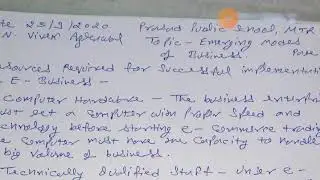 te 23/9/2020 Prasad Public School, MTR
N. Vivek Agrawal Topic - Emerging Modes
of Business
sources required for successful implementati
E - Business -
Computer Hardware - The business enterpris
ust get a Computer with Proper Speed and
chnology before starting e - commerce trading
e Computer must have the Capacity to handle
big volume of business.
Technically Qualified Staff - Under e -